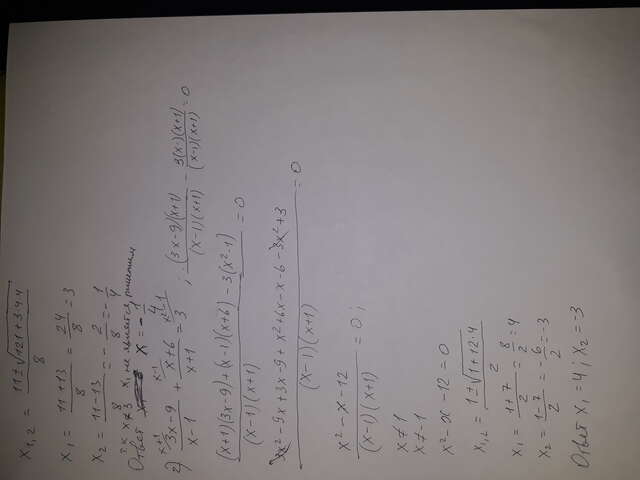 x₁,₂ = (11 ± √(121 + 3·4·4)) / 8
x₁ = (11+13)/8 = 24/8 = 3
x₂ = (11-13)/8 = -2/8 = -1/4
т.к x≠3 x₁ не является решением
Ответ x = -1/4
2) (3x-9)/(x-1) ^(x+1) + (x+6)/(x+1) ^(x-1) = 3 ^(x²-1) ; (3x-9)(x+1)/((x-1)(x+1)) - 3(x-1)(x+1)/((x-1)(x+1)) = 0
((x+1)(3x-9)+(x-1)(x+6) - 3(x²-1)) / ((x-1)(x+1)) = 0
(3x² - 9x + 3x - 9 + x² + 6x - x - 6 - 3x² + 3) / ((x-1)(x+1)) = 0
(x² - x - 12) / ((x-1)(x+1)) = 0 ;
x ≠ 1
x ≠ -1
x² - x - 12 = 0
x₁,₂ = (1 ± √(1+12·4)) / 2
x₁ = (1+7)/2 = 8/2 = 4
x₂ = (1-7)/2 = -6/2 = -3
Ответ x₁ = 4 ; x₂ = -3